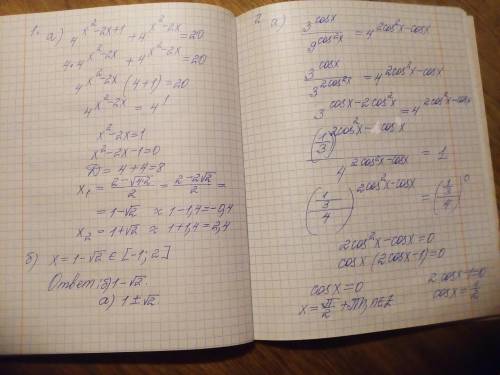 1. а) 4^(x²-2x+1) + 4^(x²-2x) = 20
4·4^(x²-2x) + 4^(x²-2x) = 20
4^(x²-2x) (4+1) = 20
4^(x²-2x) = 4¹
x²-2x=1
x²-2x-1=0
D = 4+4=8
x₁ = (2-√(4·2))/2 = (2-2√2)/2 =
= 1-√2 ≈ 1-1,4=-0,4
x₂ = 1+√2 ≈ 1+1,4=2,4
б) x=1-√2 ∈ [-1; 2]
Ответ: б) 1-√2.
а) 1±√2.
2. а) 3^(cosx)/9^(cos²x) = 4^(2cos²x-cosx)
3^(cosx)/3^(2cos²x) = 4^(2cos²x-cosx)
3^(cosx-2cos²x) = 4^(2cos²x-cosx)
(1/3)^(2cos²x-cosx)
/4^(2cos²x-cosx) = 1
((1/3)/4)^(2cos²x-cosx) = ((1/3)/4)^0
2cos²x-cosx=0
cosx(2cosx-1)=0
cosx=0 2cosx-1=0
x=π/2+πn, n∈Z cosx=1/2